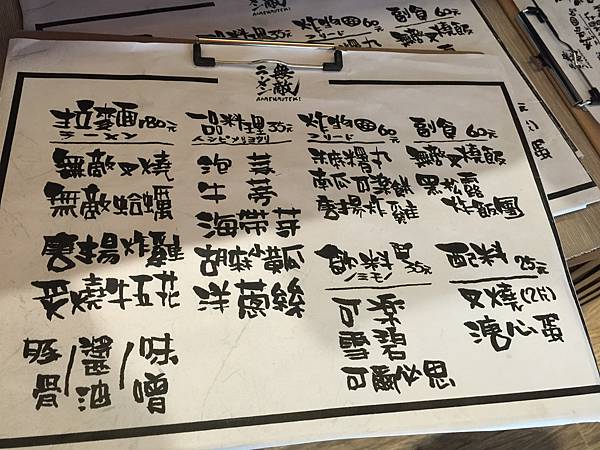 無敵
ラーメン
AMENMUTEKI
拉麵 180元
ラーメン
無敵叉燒
無敵蛤蠣
唐揚炸雞
炙燒牛五花
豚骨/醬油/味噌
一品料理 35元
泡菜
牛蒡
海帶芽
胡麻黃瓜
洋蔥絲
炸物 60元
フリード
南瓜可樂餅
唐揚炸雞
飲料 35元
ノミモノ
可樂
雪碧
可爾必思
副食 60元
無敵叉燒飯
黑松露
炸飯糰
配料 25元
叉燒(2片)
溏心蛋